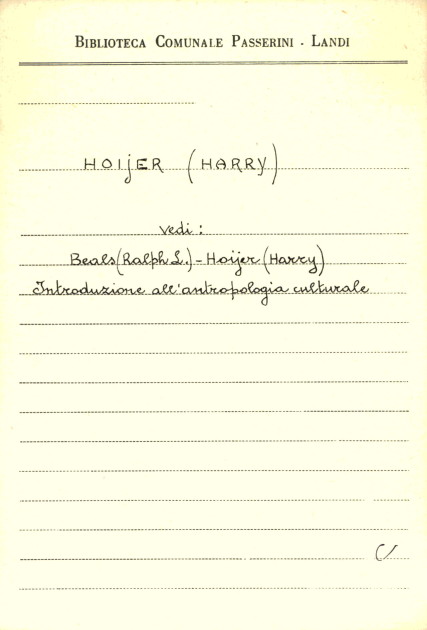 BIBLIOTECA COMUNALE PASSERINI - LANDI
HOIJER (HARRY)
vedi:
Beals (Ralph L.) - Hoijer (Harry)
Introduzione all'antropologia culturale